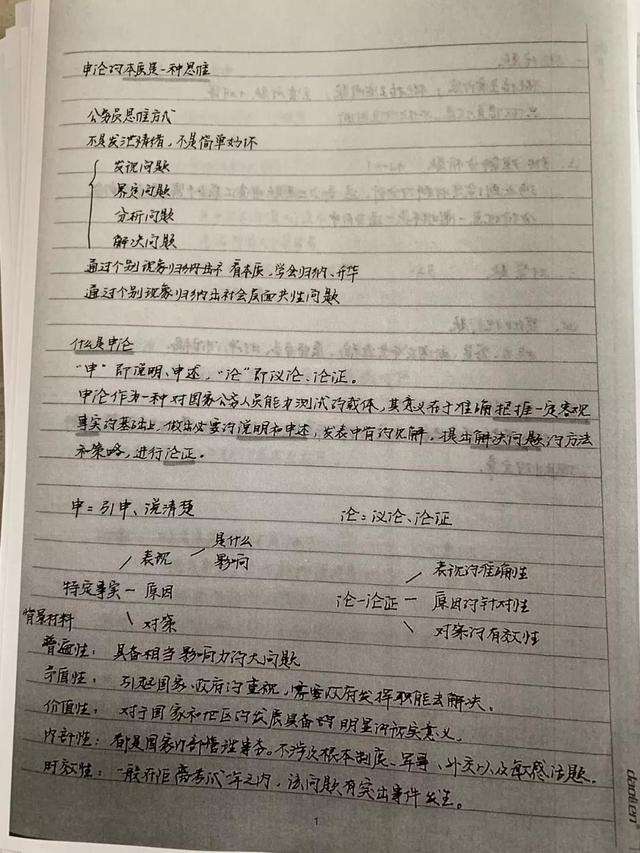 申论的本质是一种思维
公务员思维方式
不是发泄情绪，不是简单好坏
发现问题
界定问题
分析问题
解决问题
通过个别现象归纳出 看本质，学会归纳、升华
通过个别现象归纳出社会层面共性问题
什么是申论
“申”即说明、申述，“论”即议论、论证。
申论作为一种对国家公务人员能力测试的载体，其意义在于准确把握一定客观
事实的基础上，做出必要的说明和申述，发表中肯的见解，提出解决问题的方法
和策略，进行论证。
申=引申、说清楚 论=议论、论证
是什么
表现 影响 表现的准确性
特定事实 — 原因 论—论证 — 原因的针对性
对策 对策的有效性
背景材料
普遍性：具备相当影响力的大问题
矛盾性：引起国家、政府的重视，需要政府发挥职能去解决。
价值性：对于国家和社区的发展具备的明显的现实意义。
内部性：都是国家内部管理事务。不涉及根本制度、军事、外交以及敏感话题。
时效性：一般在距离考试一年之内，该问题有突出事件发生。
1